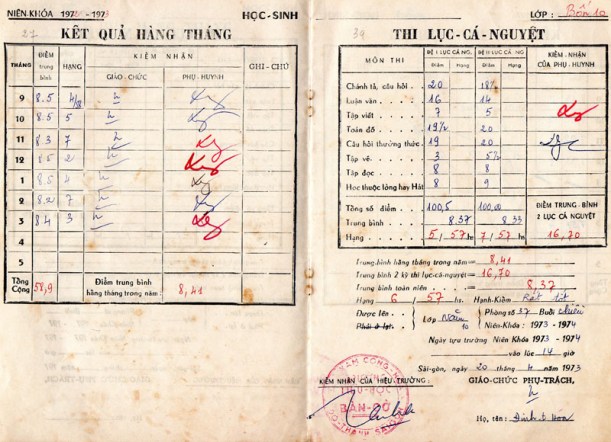 NIÊN-KHÓA 1972 - 1973
HỌC-SINH
KẾT QUẢ HÀNG THÁNG
THÁNG
ĐIỂM trung bình
HẠNG
KIỂM NHẬN
GIÁO-CHỨC
PHỤ-HUYNH
GHI-CHÚ
9 8.5 4/58
10 8.5 5
11 8.3 7
12 8.5 2
1 8.5 4
2 8.2 7
3 8.4 3
4
5
Tổng Cộng 58,9
Điểm trung bình hàng tháng trong năm : 8,41
LỚP : Bốn 10
THI LỤC-CÁ-NGUYỆT
MÔN THI
ĐỆ I LỤC CÁ NG.
ĐỆ II LỤC CÁ NG.
Điểm Hạng Điểm Hạng
KIỂM-NHẬN CỦA PHỤ-HUYNH
Chánh tả, câu hỏi 20 18½
Luận văn 16 14
Tập viết 7 5
Toán đố 19½ 20
Câu hỏi thường thức 19 20
Tập vẽ 3 5½
Tập đọc 8 8
Học thuộc lòng hay Hát 8 9
Tổng số điểm 100,5 100,0
Trung bình 8.37 8.33
Hạng 5/57 hs 7/57 hs
ĐIỂM TRUNG-BÌNH 2 LỤC CÁ NGUYỆT
16,70
Trung-bình hàng tháng trong năm = 8,41
Trung-bình 2 kỳ thi lục-cá-nguyệt = 16,70
Trung-bình toàn niên = 8,37
Hạng 6 / 57 hs. Hạnh-Kiểm Rất tốt
Được lên Lớp Năm 10 Phòng số 37 Buổi chiều
Phải ở lại Niên-Khóa : 1973 - 1974
Ngày tựu trường Niên Khóa 1973 - 1974
vào lúc 14 giờ
Sài-gòn, ngày 20 tháng 4 năm 1973
KIỂM NHẬN CỦA HIỆU-TRƯỞNG
GIÁO-CHỨC PHỤ-TRÁCH,
BÀN-CỜ
Họ, tên :